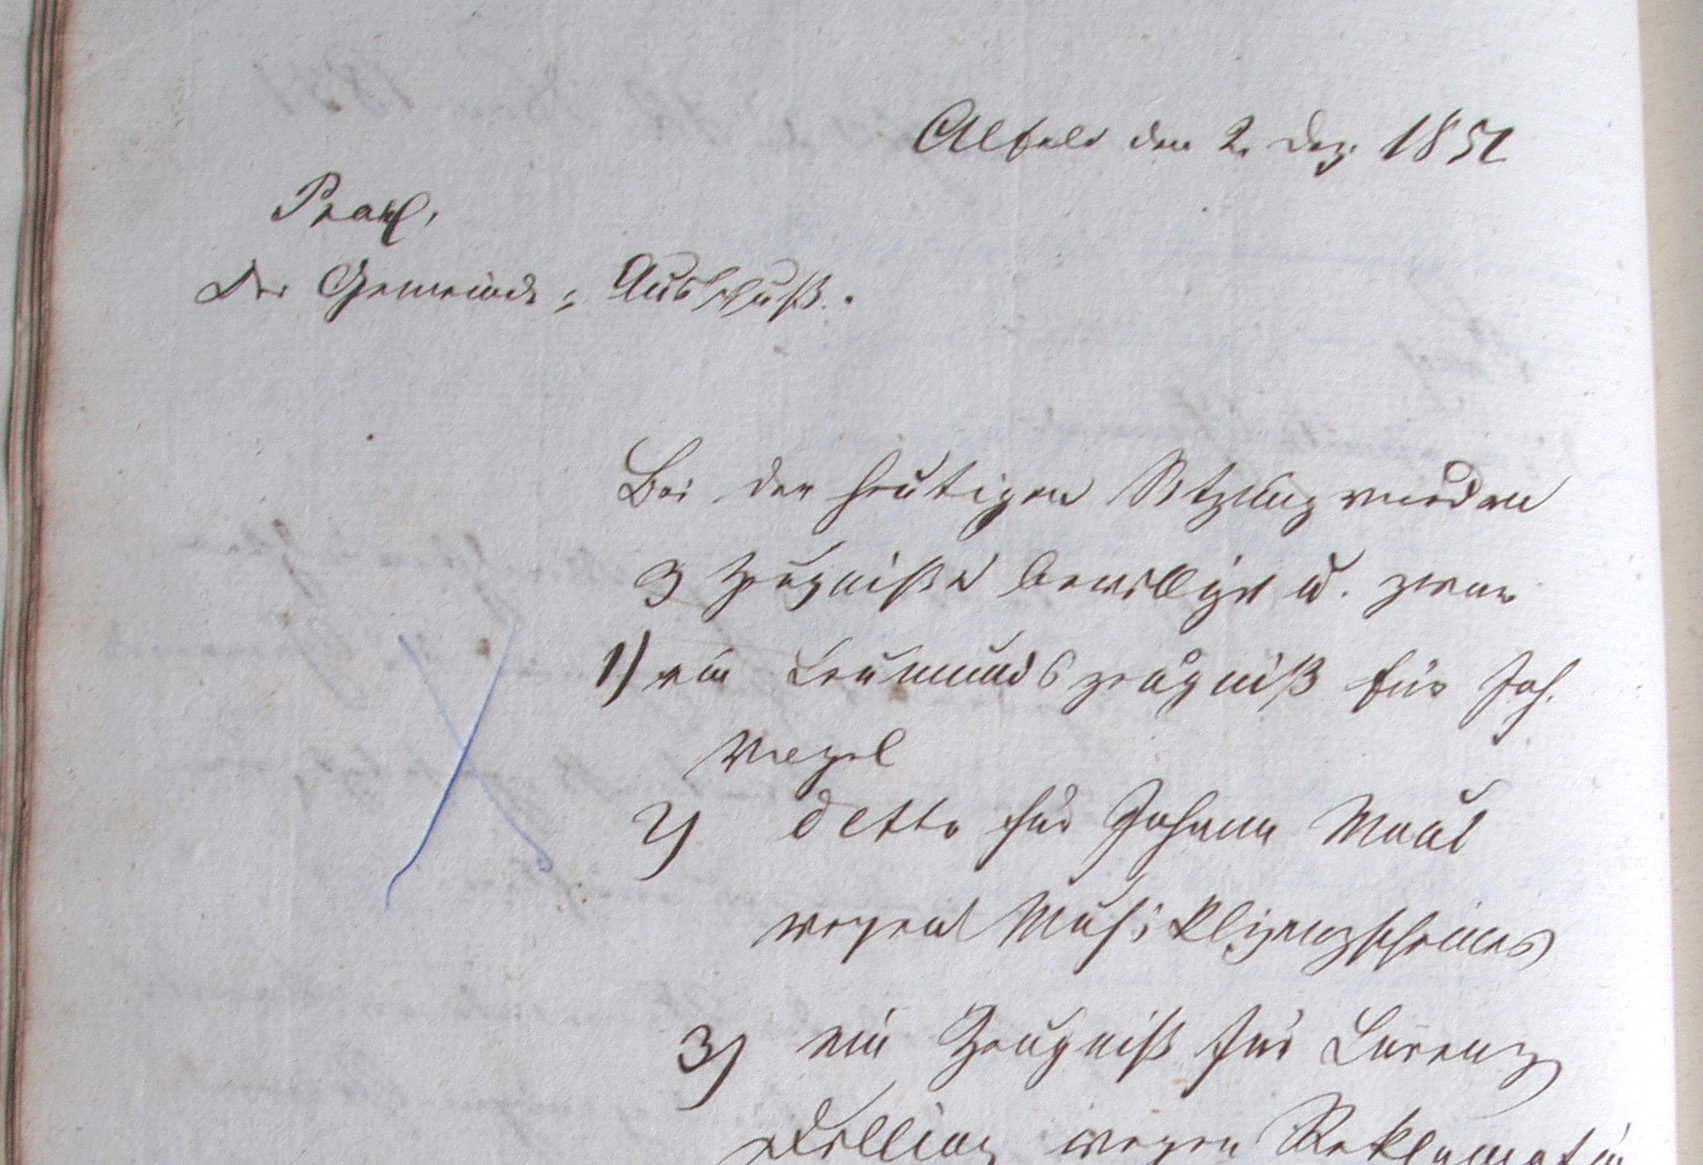 Alfeld den 2. Dez. 1851
Praes.
Der Gemeinde-Ausschuß.
Bei der heutigen Sitzung wurden
3 Zeugniße bewilligt u. zwar
1) ein Leumundszeugniß für Joh.
Vogel
2) detto für Johann Maul
wegen Musiklizenzscheines
3) ein Zeugniß für Lorenz
wegen Reklamation